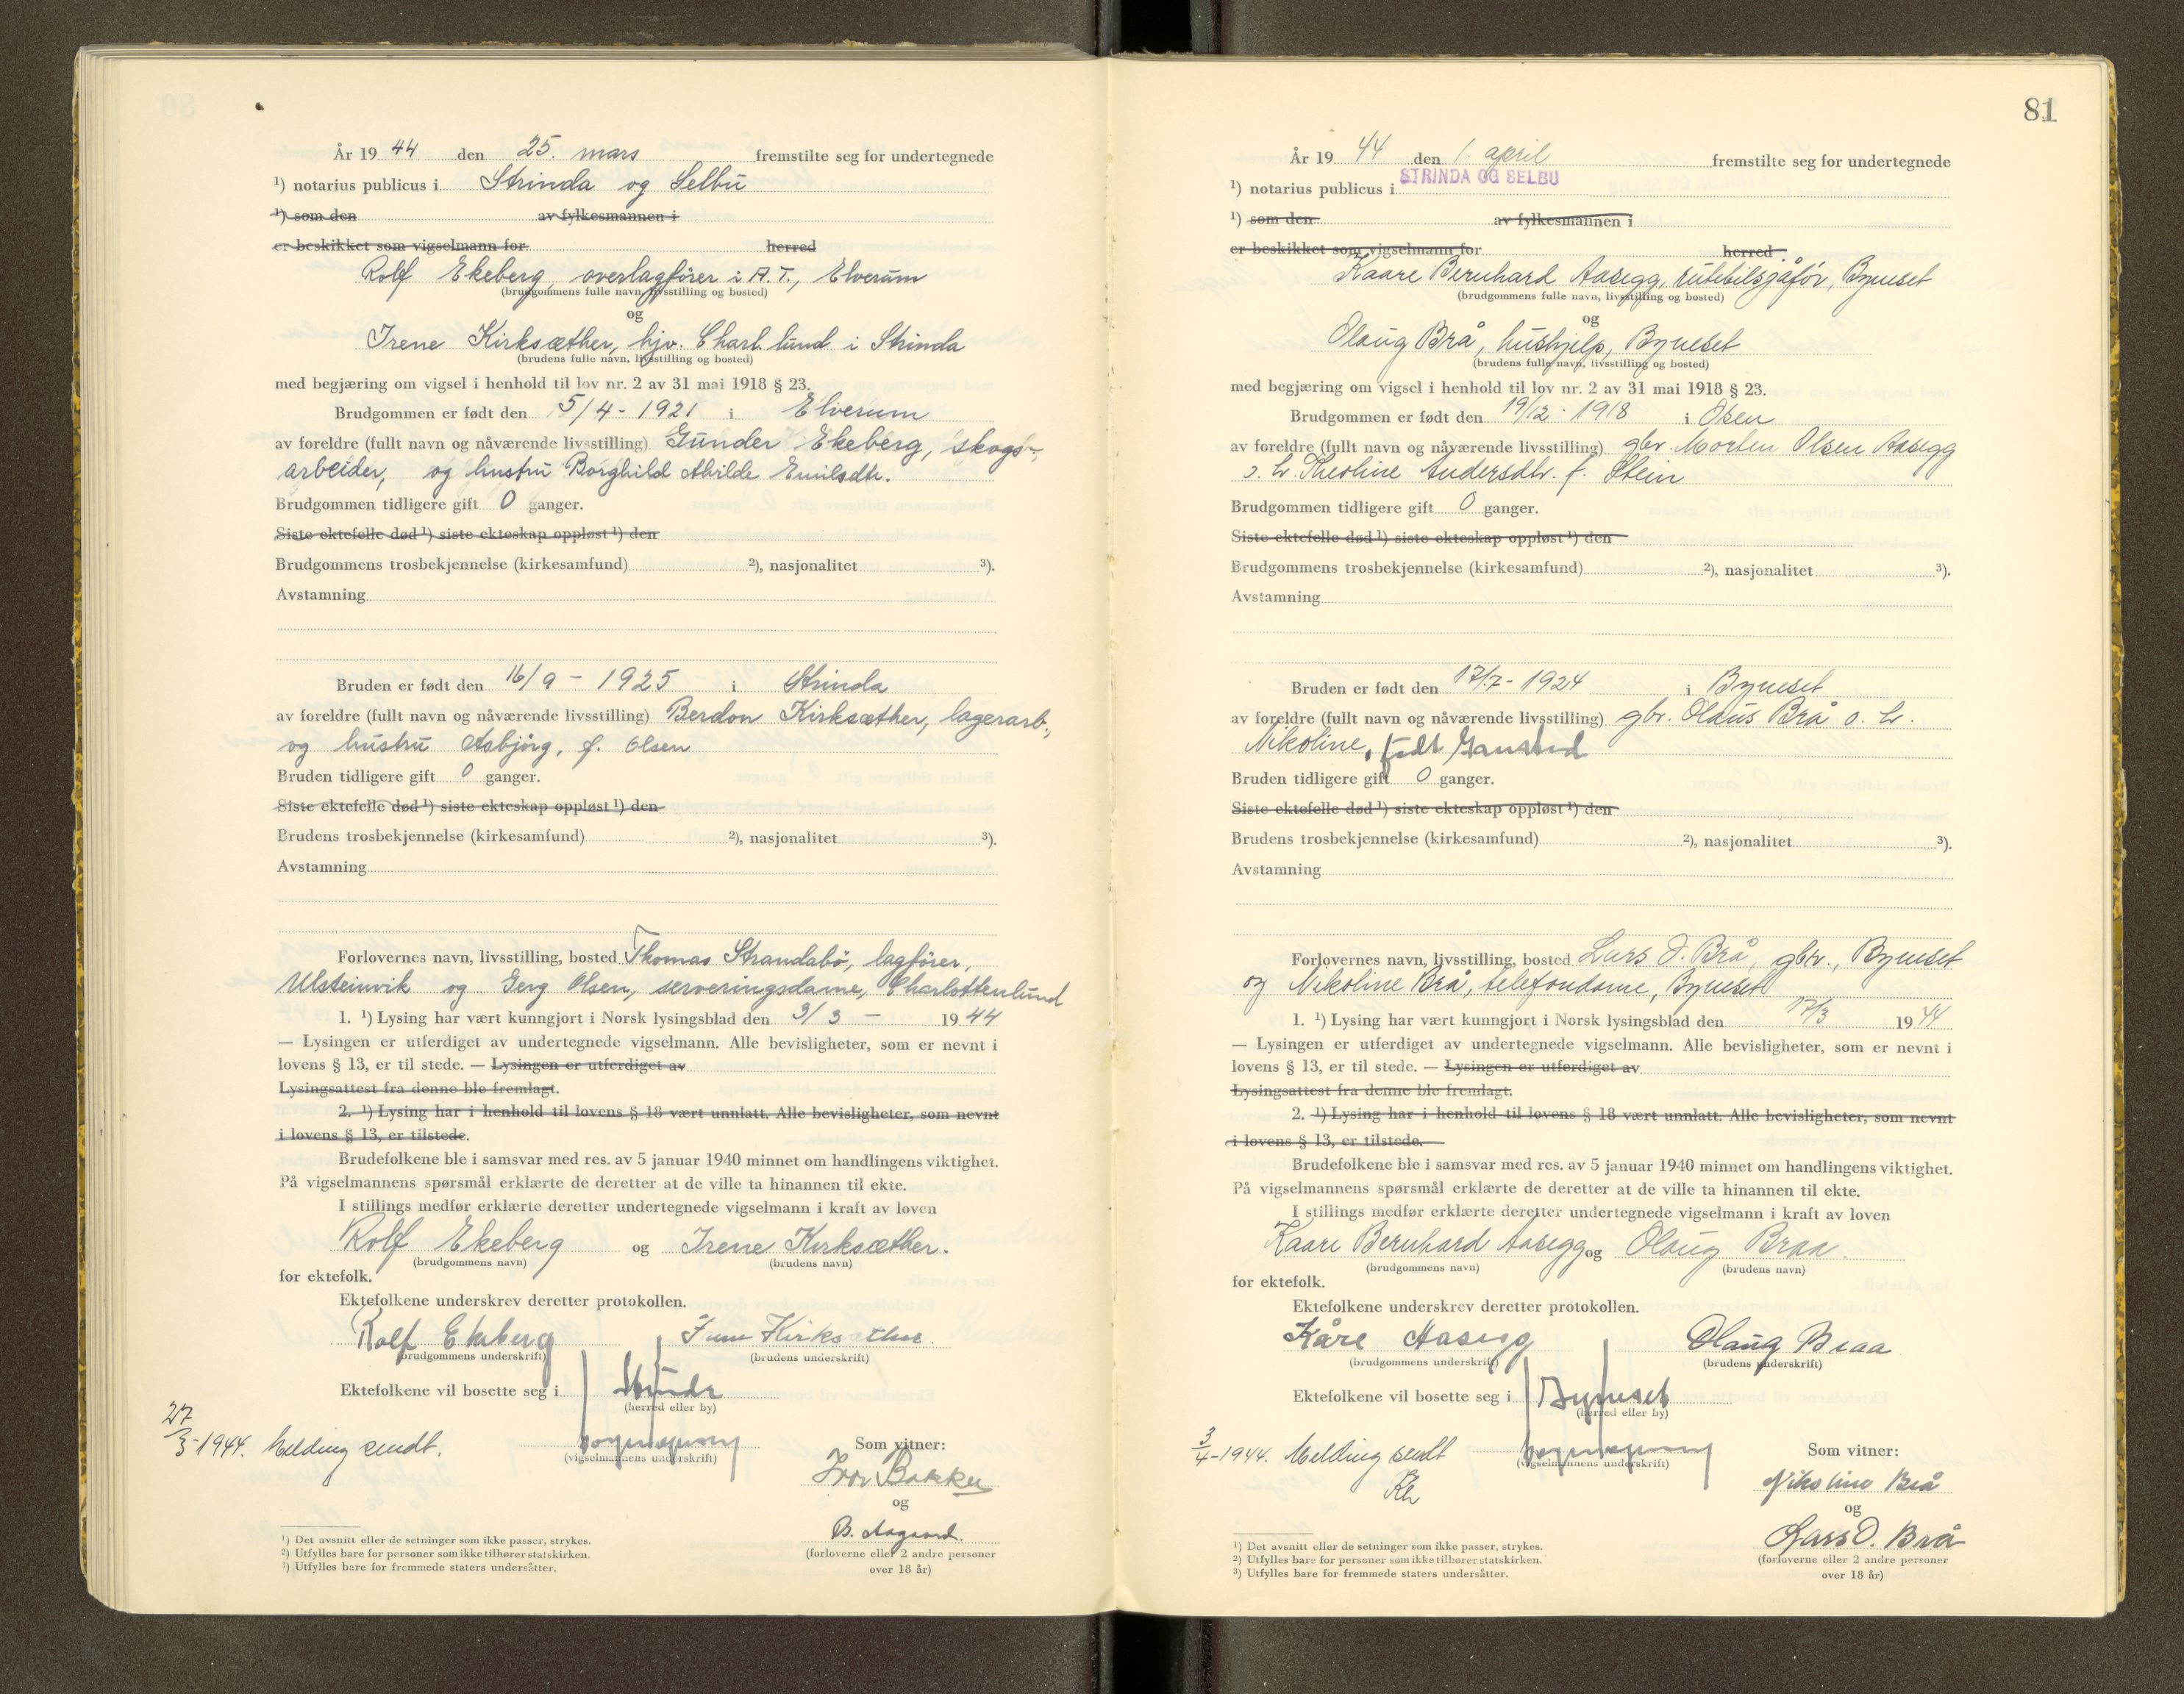 År 19 44 den 25. mars fremstilte seg for undertegnede
¹) notarius publicus i Strinda og Selbu
¹) som den av fylkesmannen i
er beskikket som vigselmann for herred
Rolf Ekeberg, overlagfører i A.T., Elverum
(brudgommens fulle navn, livsstilling og bosted)
og
Irene Kirksæther, hjv. Charl.lund i Strinda
(brudens fulle navn, livsstilling og bosted)
med begjæring om vigsel i henhold til lov nr. 2 av 31 mai 1918 § 23.
Brudgommen er født den 5/4 - 1921 i Elverum
av foreldre (fullt navn og nåværende livsstilling) Gunder Ekeberg, skogs-
arbeider, og hustru Borghild Emilsdtr.
Brudgommen tidligere gift 0 ganger.
Siste ektefelle død ¹) siste ekteskap oppløst ¹) den
Brudgommens trosbekjennelse (kirkesamfund) ²), nasjonalitet ³).
Avstamning
Bruden er født den 16/9 - 1925 i Strinda
av foreldre (fullt navn og nåværende livsstilling) Berdon Kirksæther, lagerarb.,
og hustru Asbjørg, f. Olsen
Bruden tidligere gift 0 ganger.
Siste ektefelle død ¹) siste ekteskap oppløst ¹) den
Brudens trosbekjennelse (kirkesamfund) ²), nasjonalitet ³).
Avstamning
Forlovernes navn, livsstilling, bosted Thomas Strandabö, lagfører,
Ulsteinvik og Gerg Olsen, serveringsdame, Charlottenlund
1. ¹) Lysing har vært kunngjort i Norsk lysingsblad den 3/3 - 19 44
— Lysingen er utferdiget av undertegnede vigselmann. Alle bevisligheter, som er nevnt i
lovens § 13, er til stede. — Lysingen er utferdiget av
Lysingsattest fra denne ble fremlagt.
2. ¹) Lysing har i henhold til lovens § 18 vært unnlatt. Alle bevisligheter, som nevnt
i lovens § 13, er tilstede.
Brudefolkene ble i samsvar med res. av 5 januar 1940 minnet om handlingens viktighet.
På vigselmannens spørsmål erklærte de deretter at de ville ta hinannen til ekte.
I stillings medfør erklærte deretter undertegnede vigselmann i kraft av loven
Rolf Ekeberg og Irene Kirksæther.
(brudgommens navn) (brudens navn)
for ektefolk.
Ektefolkene underskrev deretter protokollen.
Rolf Ekeberg Irene Kirksæther
(brudgommens underskrift) (brudens underskrift)
Ektefolkene vil bosette seg i Strinda
(herred eller by)
27/3-1944. Melding sendt.
(vigselmannens underskrift)
Som vitner:
Ivar Bakken
og
B. Aagaard.
(forloverne eller 2 andre personer
over 18 år)
¹) Det avsnitt eller de setninger som ikke passer, strykes.
²) Utfylles bare for personer som ikke tilhører statskirken.
³) Utfylles bare for fremmede staters undersåtter.
81
År 19 44 den 1. april fremstilte seg for undertegnede
¹) notarius publicus i STRINDA OG SELBU
¹) som den av fylkesmannen i
er beskikket som vigselmann for herred
Kaare Bernhard Aasegg, rutebilsjåför, Byneset
(brudgommens fulle navn, livsstilling og bosted)
og
Olaug Brå, hushjelp, Byneset
(brudens fulle navn, livsstilling og bosted)
med begjæring om vigsel i henhold til lov nr. 2 av 31 mai 1918 § 23.
Brudgommen er født den 19/12 - 1918 i Osen
av foreldre (fullt navn og nåværende livsstilling) gbr. Morten Olsen Aasegg
o. h. Theoline Andersdtr. f. Stein
Brudgommen tidligere gift 0 ganger.
Siste ektefelle død ¹) siste ekteskap oppløst ¹) den
Brudgommens trosbekjennelse (kirkesamfund) ²), nasjonalitet ³).
Avstamning
Bruden er født den 17/7 - 1924 i Byneset
av foreldre (fullt navn og nåværende livsstilling) gbr. Olaus Brå o. h.
Nikoline, født
Bruden tidligere gift 0 ganger.
Siste ektefelle død ¹) siste ekteskap oppløst ¹) den
Brudens trosbekjennelse (kirkesamfund) ²), nasjonalitet ³).
Avstamning
Forlovernes navn, livsstilling, bosted Lars O. Brå, gbr., Byneset
og Nikoline Brå, telefondame, Byneset
1. ¹) Lysing har vært kunngjort i Norsk lysingsblad den 17/3 19 44
— Lysingen er utferdiget av undertegnede vigselmann. Alle bevisligheter, som er nevnt i
lovens § 13, er til stede. — Lysingen er utferdiget av
Lysingsattest fra denne ble fremlagt.
2. ¹) Lysing har i henhold til lovens § 18 vært unnlatt. Alle bevisligheter, som nevnt
i lovens § 13, er tilstede.
Brudefolkene ble i samsvar med res. av 5 januar 1940 minnet om handlingens viktighet.
På vigselmannens spørsmål erklærte de deretter at de ville ta hinannen til ekte.
I stillings medfør erklærte deretter undertegnede vigselmann i kraft av loven
Kaare Bernhard Aasegg og Olaug Braa.
(brudgommens navn) (brudens navn)
for ektefolk.
Ektefolkene underskrev deretter protokollen.
Kåre Aasegg Olaug Braa
(brudgommens underskrift) (brudens underskrift)
Ektefolkene vil bosette seg i Byneset
(herred eller by)
3/4-1944. Melding sendt
(vigselmannens underskrift)
Som vitner:
Nikoline Brå
og
Lars O. Brå
(forloverne eller 2 andre personer
over 18 år)
¹) Det avsnitt eller de setninger som ikke passer, strykes.
²) Utfylles bare for personer som ikke tilhører statskirken.
³) Utfylles bare for fremmede staters undersåtter.